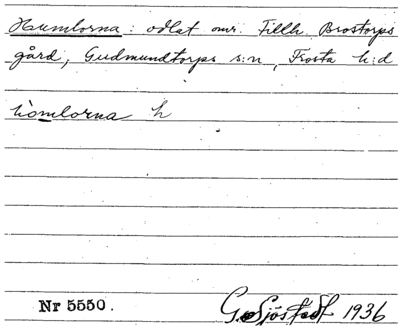 Humlorna: odlat omr. Tillh. Brostorps
gård, Gudmundtorps s:n, Frosta h:d
hòmlorna h
Nr 5550.
G. Sjöstedt 1936